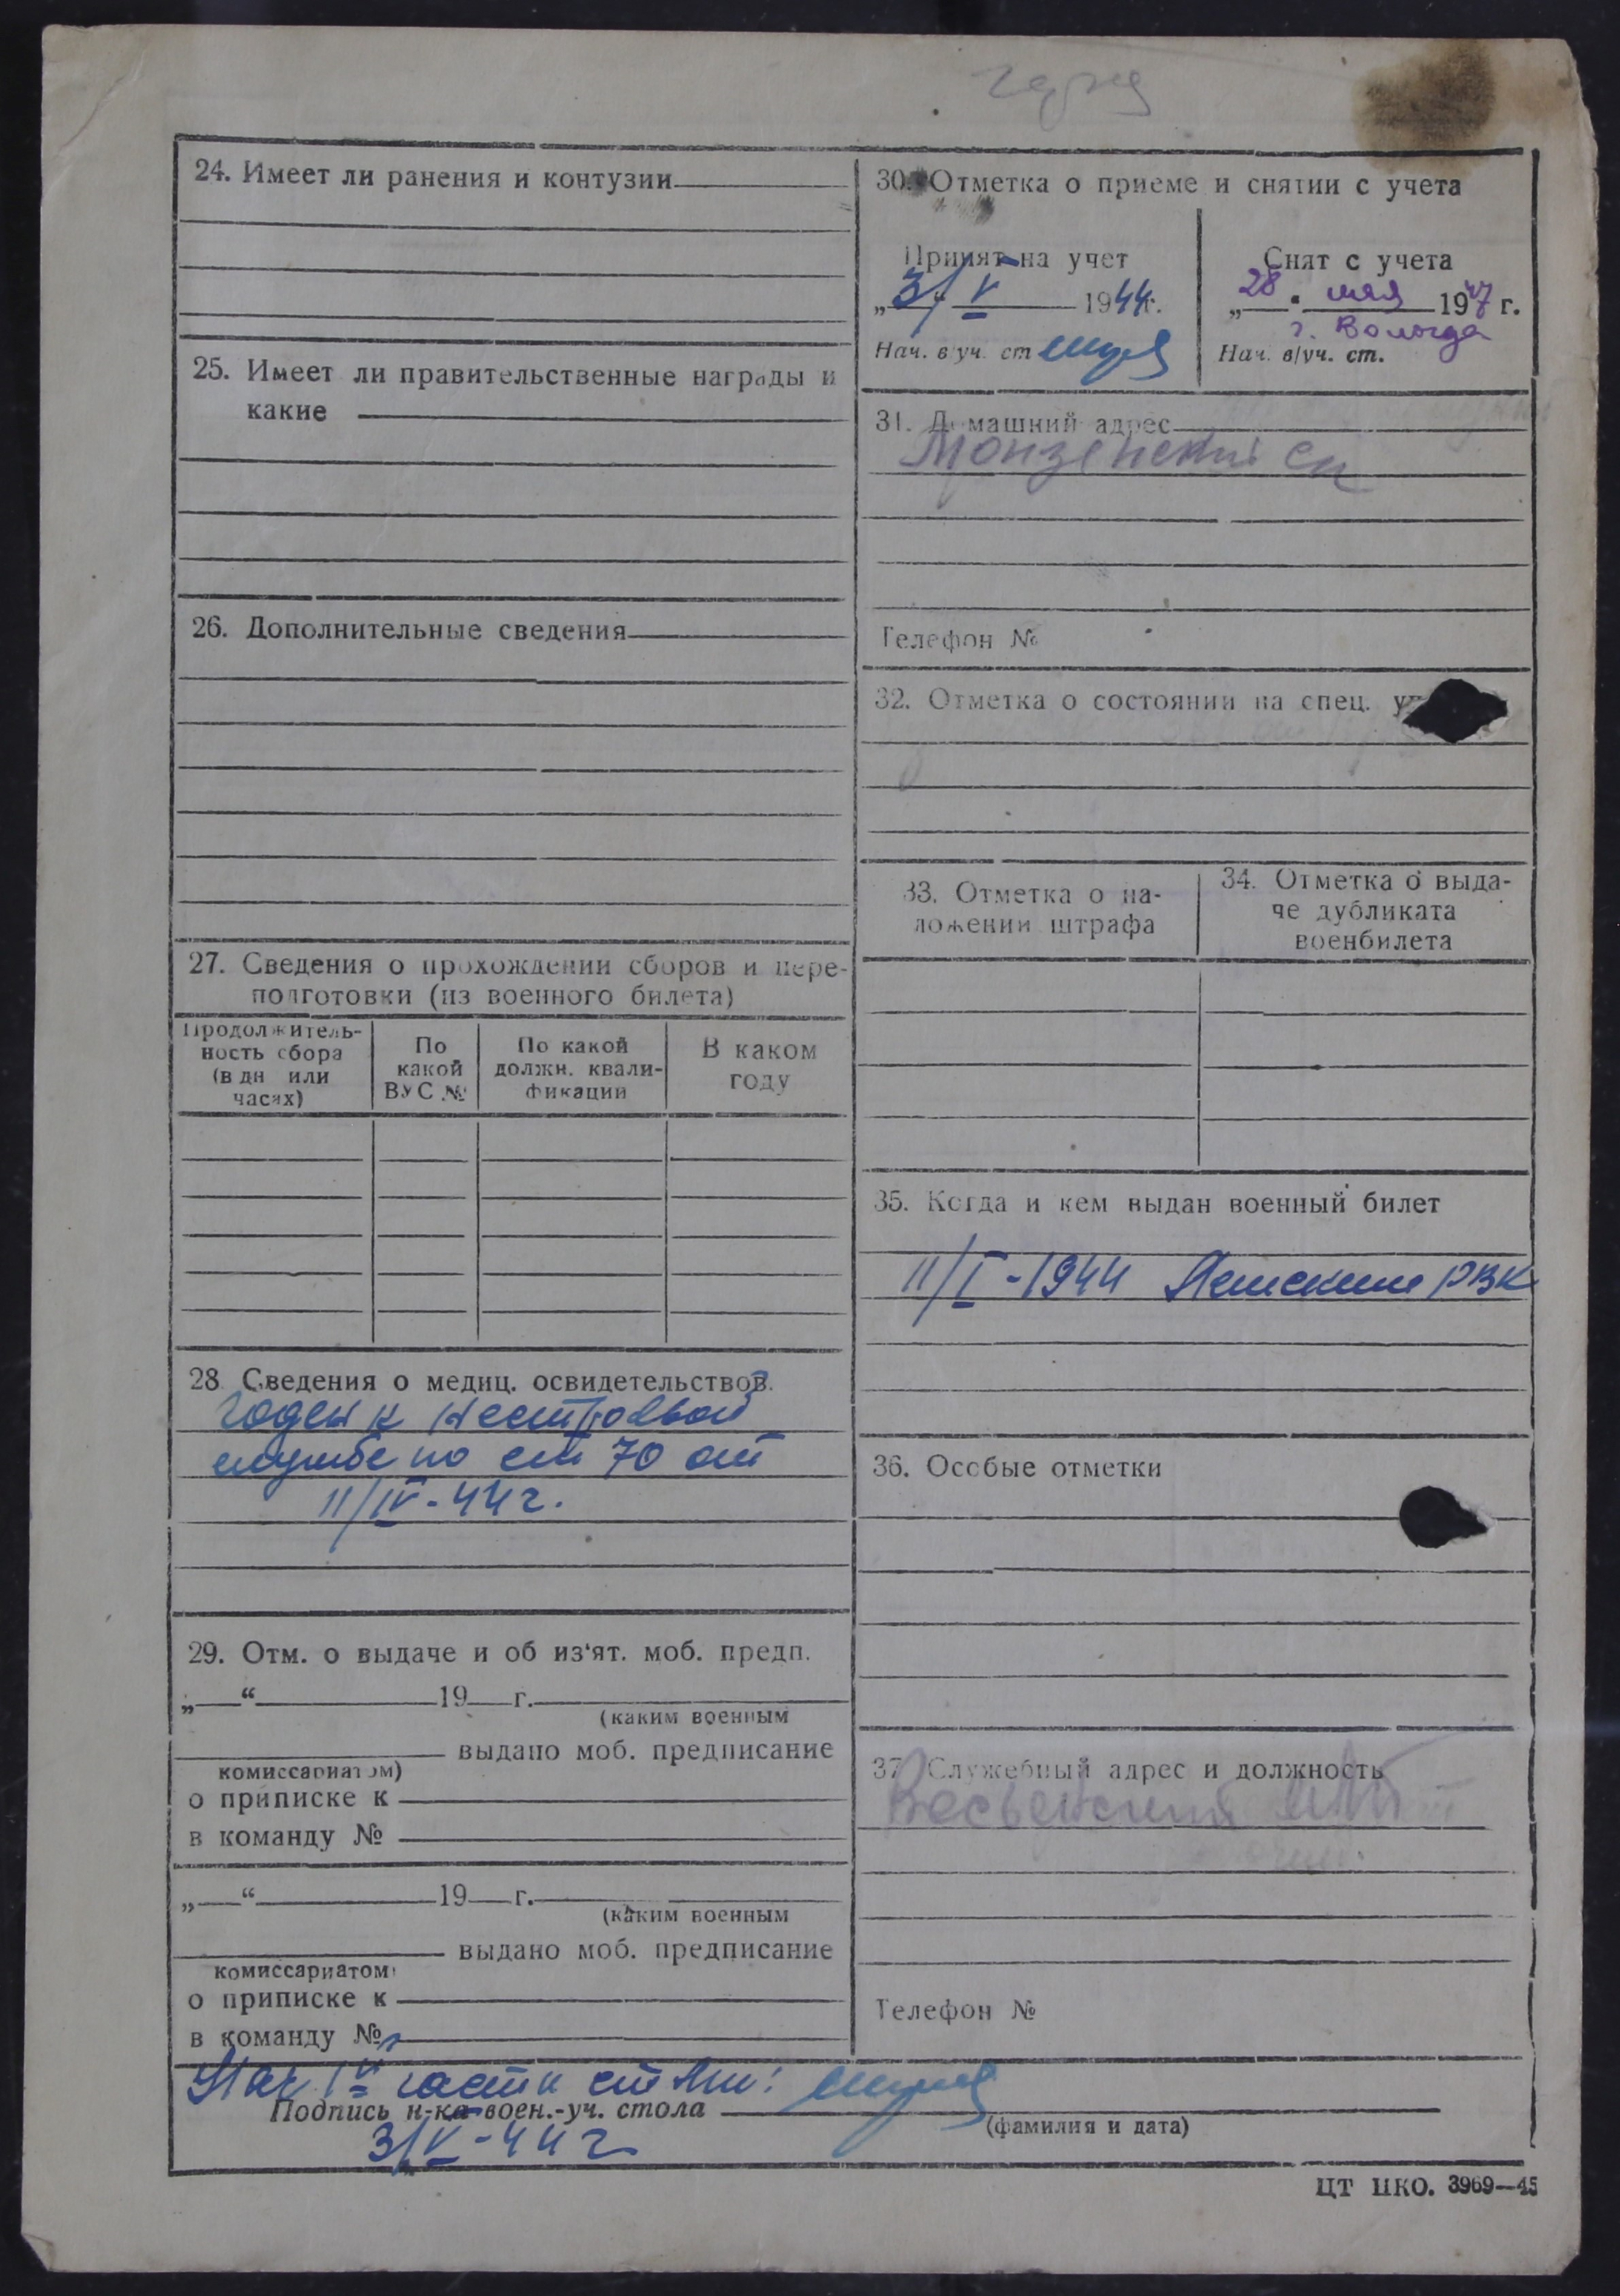 24. Имеет ли ранения и контузии
25. Имеет ли правительственные награды и
какие
26. Дополнительные сведения
27. Сведения о прохождении сборов и пере-
подготовки (из военного билета)
Продолжитель-
ность сбора
(в дн или
часах)
По
какой
ВУС №
По какой
должн. квали-
фикации
В каком
году
28 Сведения о медиц. освидетельствов.
Годен к нестроевой
службе по ст 70 от
11/IV-44 г.
29. Отм. о выдаче и об из'ят. моб. предп.
„ “ 19 г.
(каким военным
выдано моб. предписание
комиссариатом)
о приписке к
в команду №
„ “ 19 г.
(каким военным
выдано моб. предписание
комиссариатом)
о приписке к
в команду №
30. Отметка о приеме и снятии с учета
Принят на учет
„3/ V 1944г.
Нач. в уч. ст
Снят с учета
„28 “ мая 1947 г.
г. Вологда
Нач. в/уч. ст.
31. Домашний адрес
Монзенский
Телефон №
32. Отметка о состоянии на спец.
33. Отметка о на-
ложении штрафа
34. Отметка о выда-
че дубликата
военбилета
35. Когда и кем выдан военный билет
11/I-1944 РВК
36. Особые отметки
37 Служебный адрес и должность
Телефон №
Нач 1й части
Подпись н-ка воен.-уч. стола
(фамилия и дата)
3/V-44 г
ЦТ НКО. 3969—45